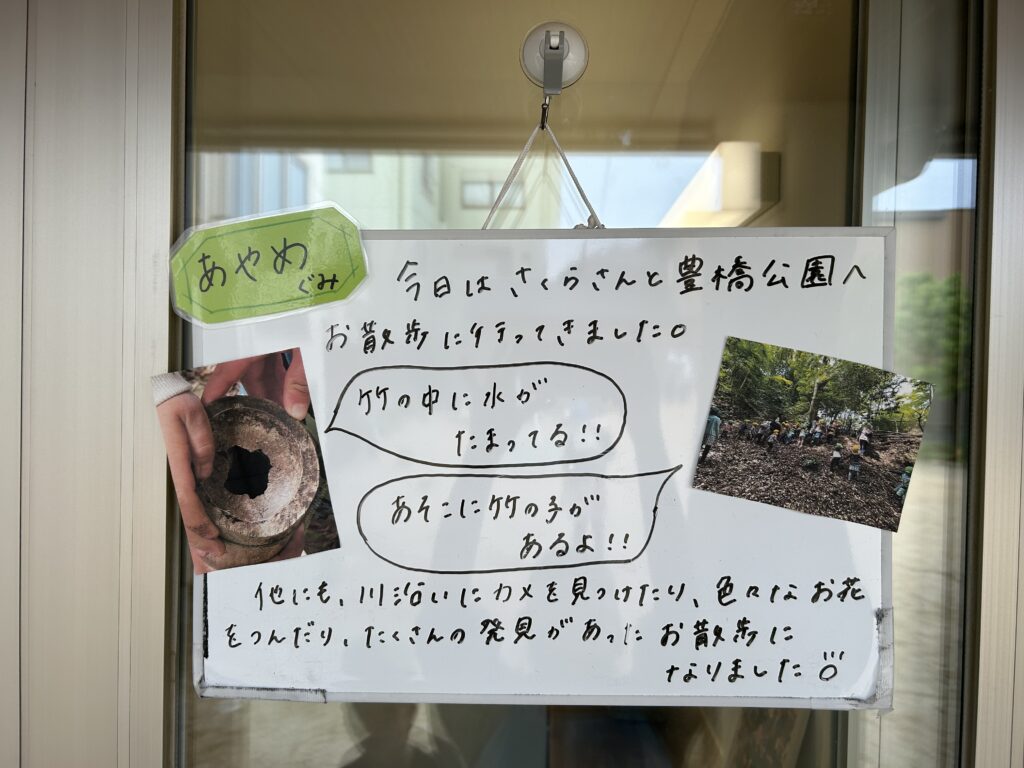 あやめ
ぐみ
今日はさくらさんと豊橋公園へ
お散歩に行ってきました。
竹の中に水が
たまってる!!
あそこに竹の子が
あるよ!!
他にも、川沿いにカメを見つけたり、色々なお花
をつんだり、たくさんの発見があったお散歩に
なりました